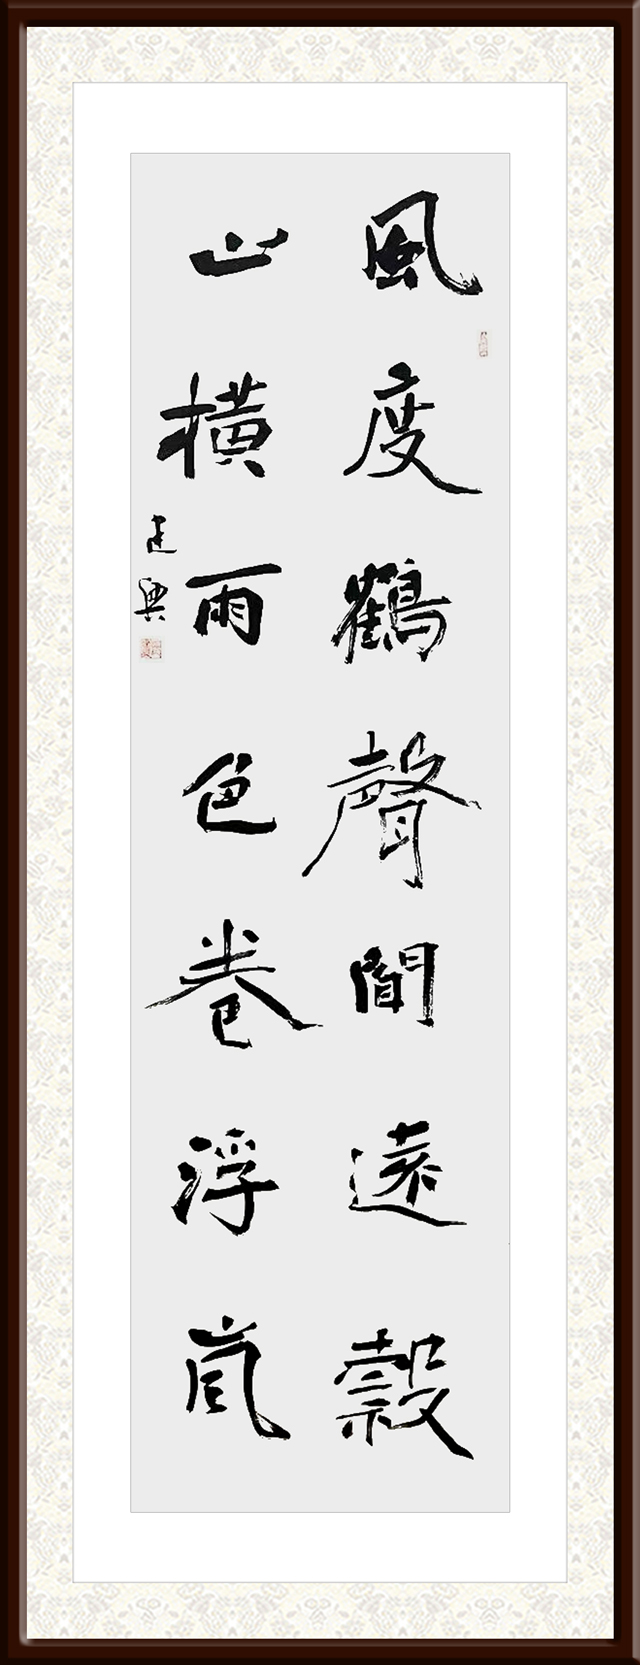 風度鶴聲聞遠穀
山橫雨色卷浮嵐
建興